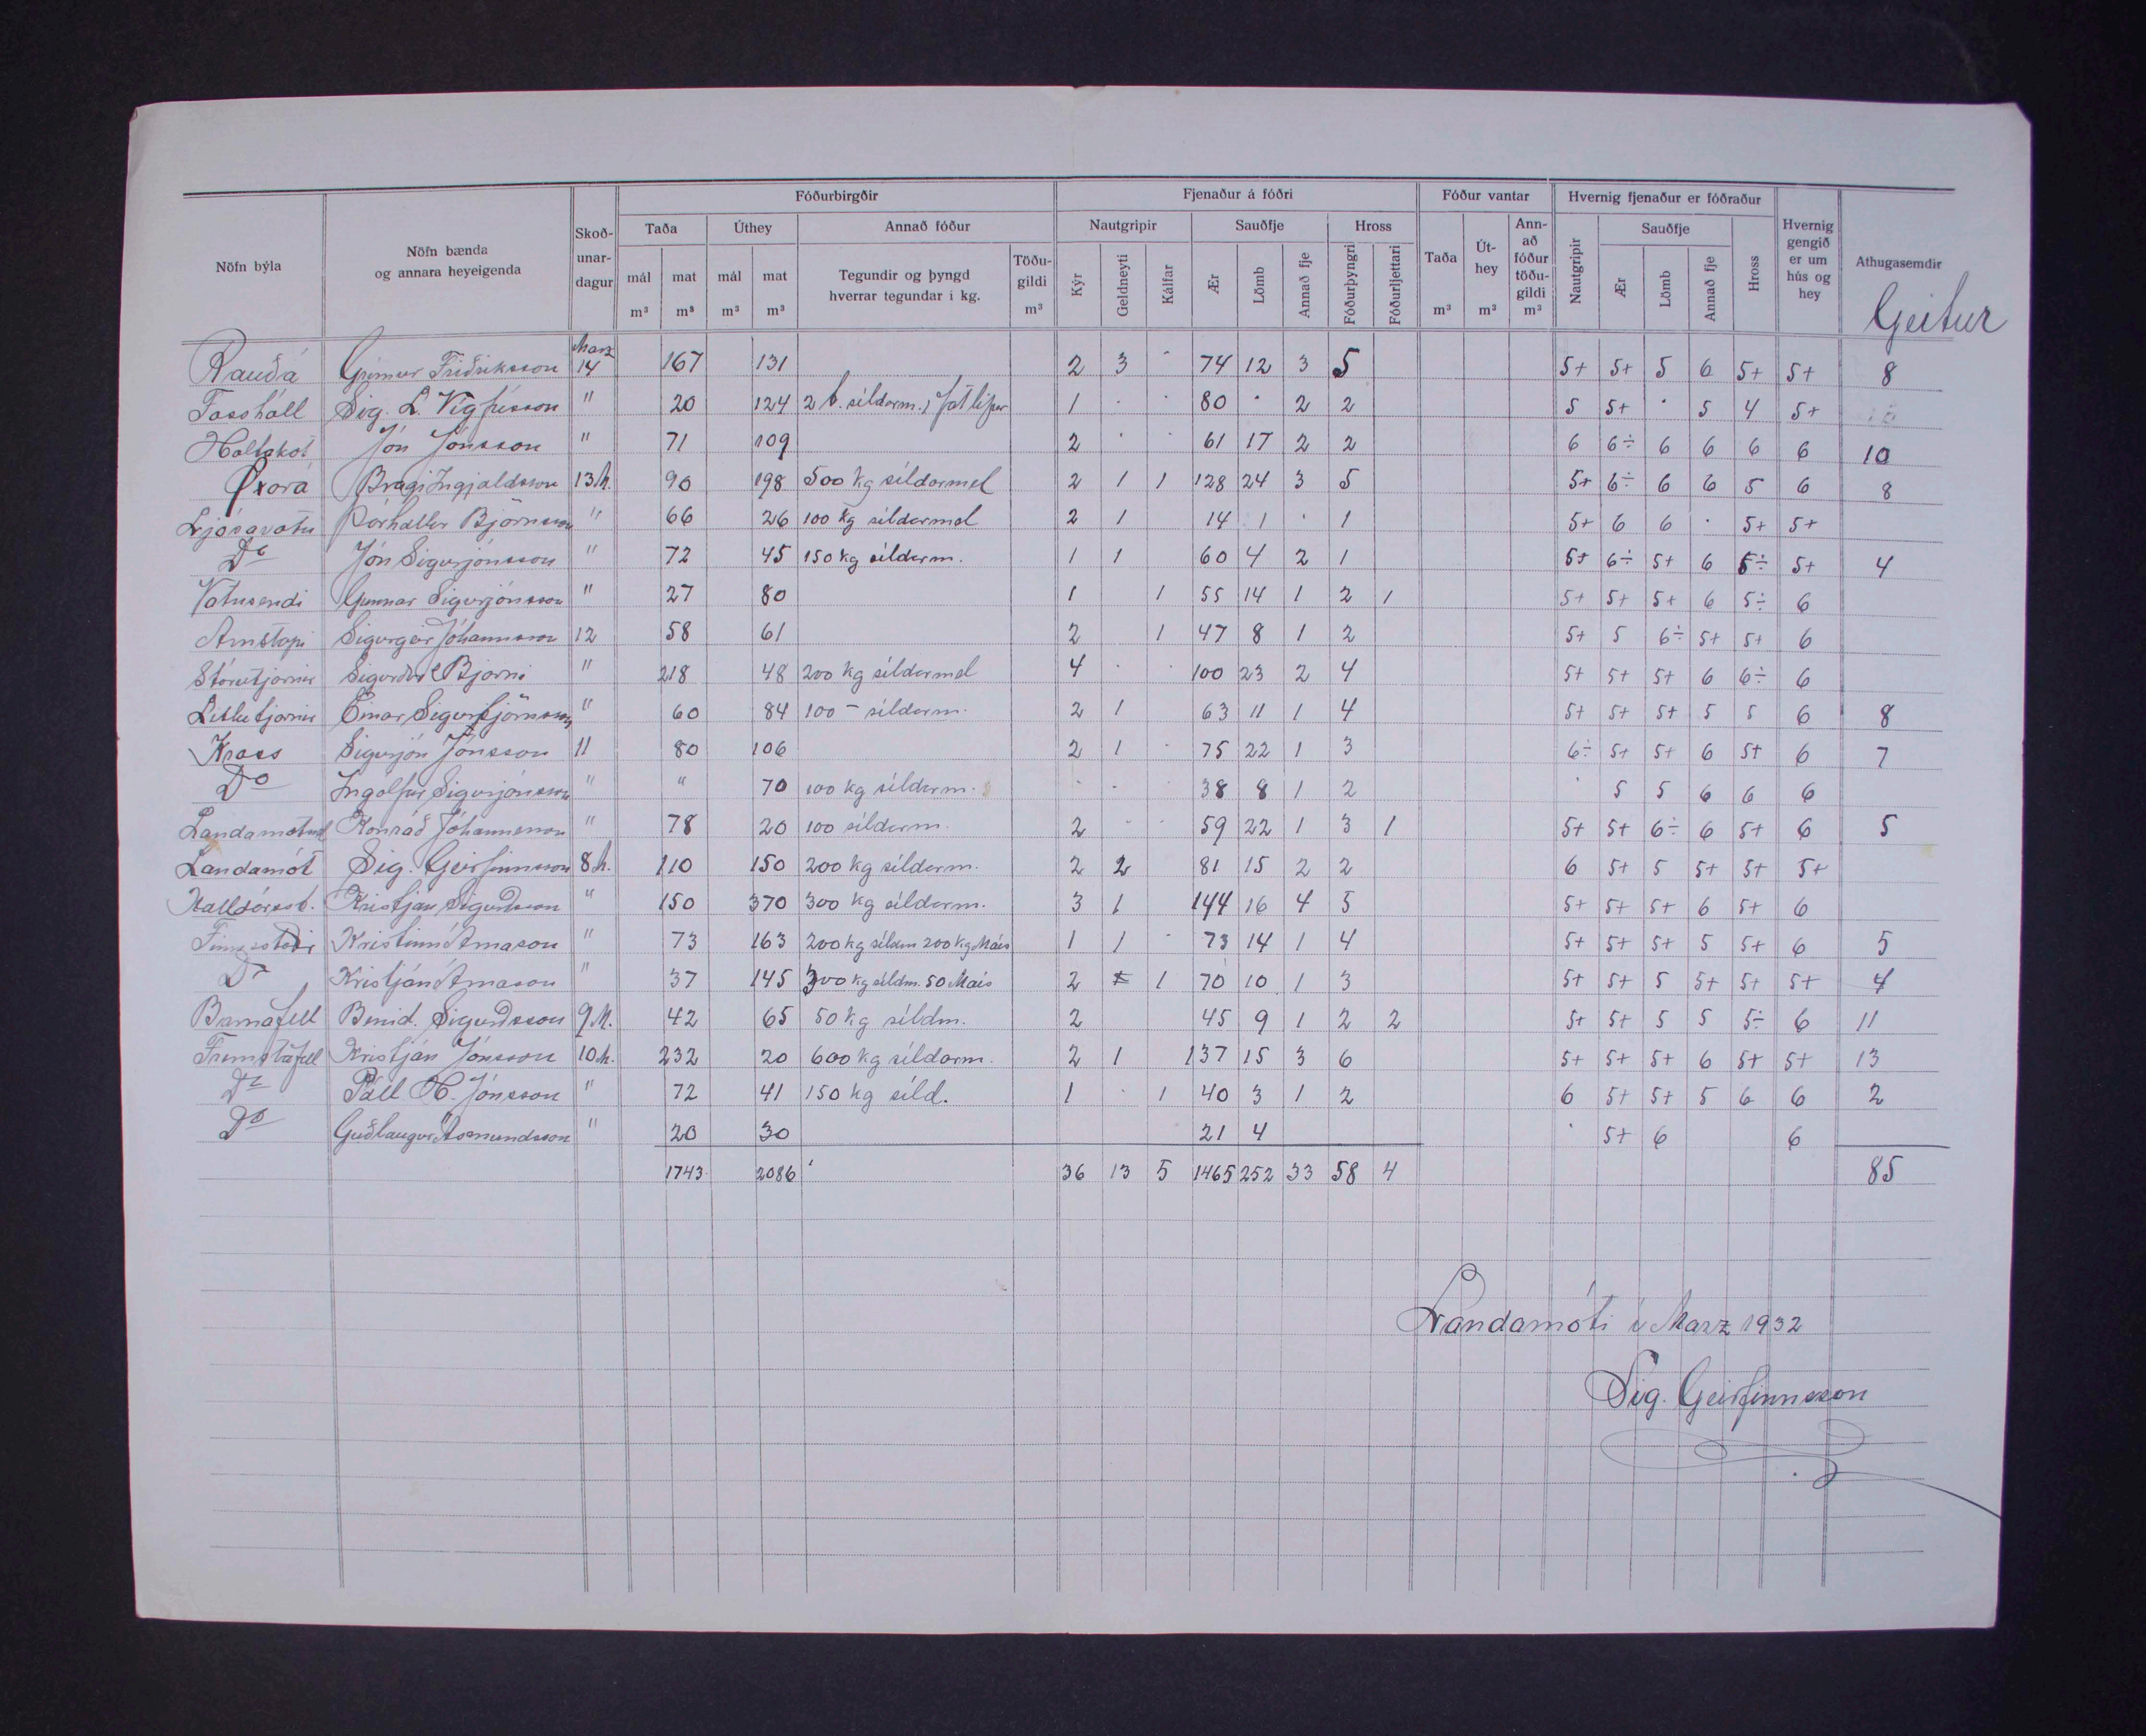 Fóðurbirgðir Fjenaður á fóðri Fóður vantar Hvernig fjenaður er fóðraður
Nöfn býla Nöfn bænda og annara heyeigenda Skoð-unar-dagur Taða Úthey Annað fóður Nautgripir Sauðfje Hross Taða Út-hey Ann-að fóður töðu-gildi Nautgripir Sauðfje Hross Hvernig gengið er um hús og hey Athugasemdir
mál mat mál mat Tegundir og þyngd hverrar tegundar í kg. Töðu-gildi Kýr Geldneyti Kálfar Ær Lömb Annað fje Fóðurþyngri Fóðurljettari Ær Lömb Annað fje
m³ m³ m³ m³ m³ m³ m³ m³ Geitur
Rauðá Grímur Friðriksson Marz 14 167 131 2 3 " 74 12 3 5 5+ 5+ 5 6 5+ 5+ 8
Fosshóll Sig. L. Vigfússon " 20 124 2 t. síldarm. 1 1 · · 80 · 2 2 5 5+ · 5 4 5+
Holtakot Jón Jónsson " 71 109 2 · · 61 17 2 2 6 6÷ 6 6 6 6 10
Øxará Bragi Ingjaldsson 13.M. 90 198 500 kg síldarmel 2 1 1 128 24 3 5 5+ 6÷ 6 6 5 6 8
Ljósavatn Þórhallur Björnsson " 66 26 100 kg síldarmel 2 1 14 1 · 1 5+ 6 6 · 5+ 5+
Do Jón Sigurjónsson " 72 45 150 kg síldarm. 1 1 60 4 2 1 5+ 6÷ 5+ 6 5÷ 5+ 4
Vatnsendi Gunnar Sigurjónsson " 27 80 1 1 55 14 1 2 1 5+ 5+ 5+ 6 5÷ 6
Arnstapi Sigurgeir Jóhannsson 12 58 61 2 1 47 8 1 2 5+ 5 6÷ 5+ 5+ 6
Stórutjarnir Sigurður & Bjarni " 218 48 200 kg síldarmel 4 · · 100 23 2 4 5+ 5+ 5+ 6 6÷ 6
Litlutjarnir Einar Sigurbjörnsson " 60 84 100 – síldarm. 2 1 63 11 1 4 5+ 5+ 5+ 5 5 6 8
Kross Sigurjón Jónsson 11 80 106 2 1 · 75 22 1 3 6÷ 5+ 5+ 6 5+ 6 7
Do Ingólfur Sigurjónsson " " 70 100 kg síldarm. · · 38 8 1 2 · 5 5 6 6 6
Landamótssel Konráð Jóhannsson " 78 20 100 síldarm. 2 · · 59 22 1 3 1 5+ 5+ 6÷ 6 5+ 6 5
Landamót Sig. Geirfinnsson 8.M. 110 150 200 kg síldarm. 2 2 81 15 2 2 6 5+ 5 5+ 5+ 5+
Halldórsst. Kristján Sigurðsson " 150 370 300 kg síldarm. 3 1 144 16 4 5 5+ 5+ 5+ 6 5+ 6
Finnsstaðir Kristinn Árnason " 73 163 200 kg síldm 200 kg Máis 1 1 · 73 14 1 4 5+ 5+ 5+ 5 5+ 6 5
Do Kristján Árnason " 37 145 300 kg síldm. 50 Máis 2 1 70 10 1 3 5+ 5+ 5 5+ 5+ 5+ 4
Barnafell Benid. Sigurdsson 9.M. 42 65 50 kg síldm. 2 45 9 1 2 2 5+ 5+ 5 5 5÷ 6 11
Fremstafell Kristján Jónsson 10.M. 232 20 600 kg síldarm. 2 1 137 15 3 6 5+ 5+ 5+ 6 5+ 5+ 13
Do Páll H. Jónsson " 72 41 150 kg síld. 1 · 1 40 3 1 2 6 5+ 5+ 5 6 6 2
Do Guðlaugur Ásmundsson " 20 30 21 4 · 5+ 6 6
1743 2086 36 13 5 1465 252 33 58 4 85
Landamóti í Marz 1932
Sig. Geirfinnsson